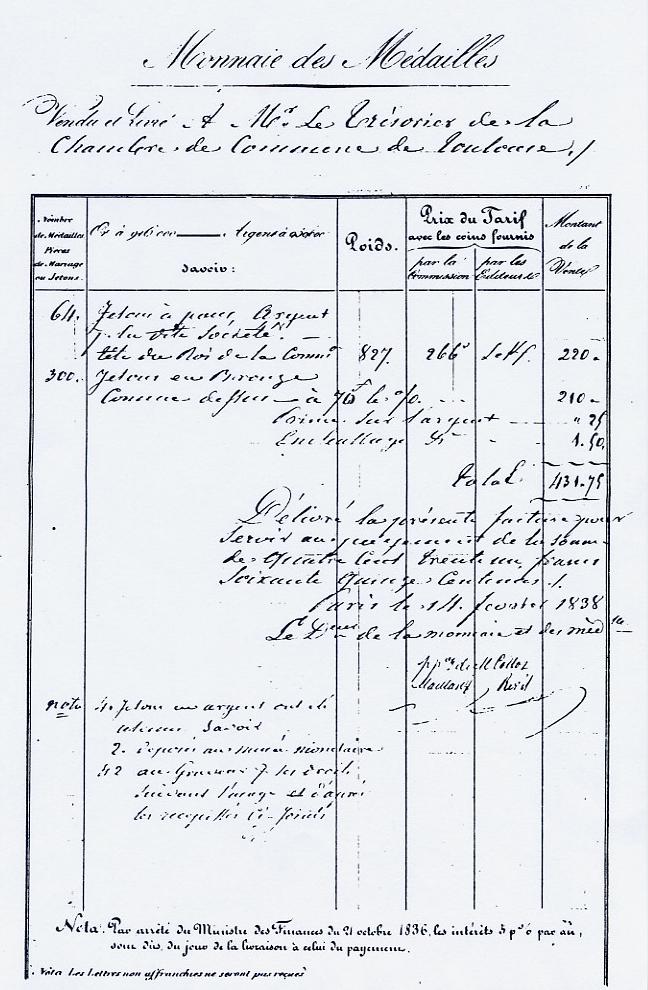 Monnaie des Médailles
Vendu et Livré A Mr. Le Trésorier de la
Chambre de Commune de Toulouse
Nombre
de Médailles
Pièces
de Mariage
ou Jetons.
Or à Argent à
savoir:
Poids.
Prix du Tarif
avec les coins fournis
par la
Commission
par les
Editeurs
Montant
de la
Vente
64. Jetons à pans, Argent
Société
tête du Roi de la Comm 827. 266 220
300. Jetons en Bronze
Comme dessus à 70 le %. 210
Prime sur l'argent " 25
Emballage 1.50
Total 431.75
Délivré la présente facture pour
servir au payement de la somme
de Quatre Cent trente un francs
Soixante Quinze Centimes.
Paris le 14 1838
Le de la monnaie et des méd
note 4 Jetons en argent ont été
retenus Savoir
2. Déposés au musée monétaire
2 au Graveur
suivant l'usage et d'après
les Ci-Joints
Nota. Par arrêté du Ministre des Finances du 21 octobre 1836, les intérêts 5 p% par an,
sont dus, du jour de la livraison à celui du payement.
Nota Les Lettres non affranchies ne seront pas reçues